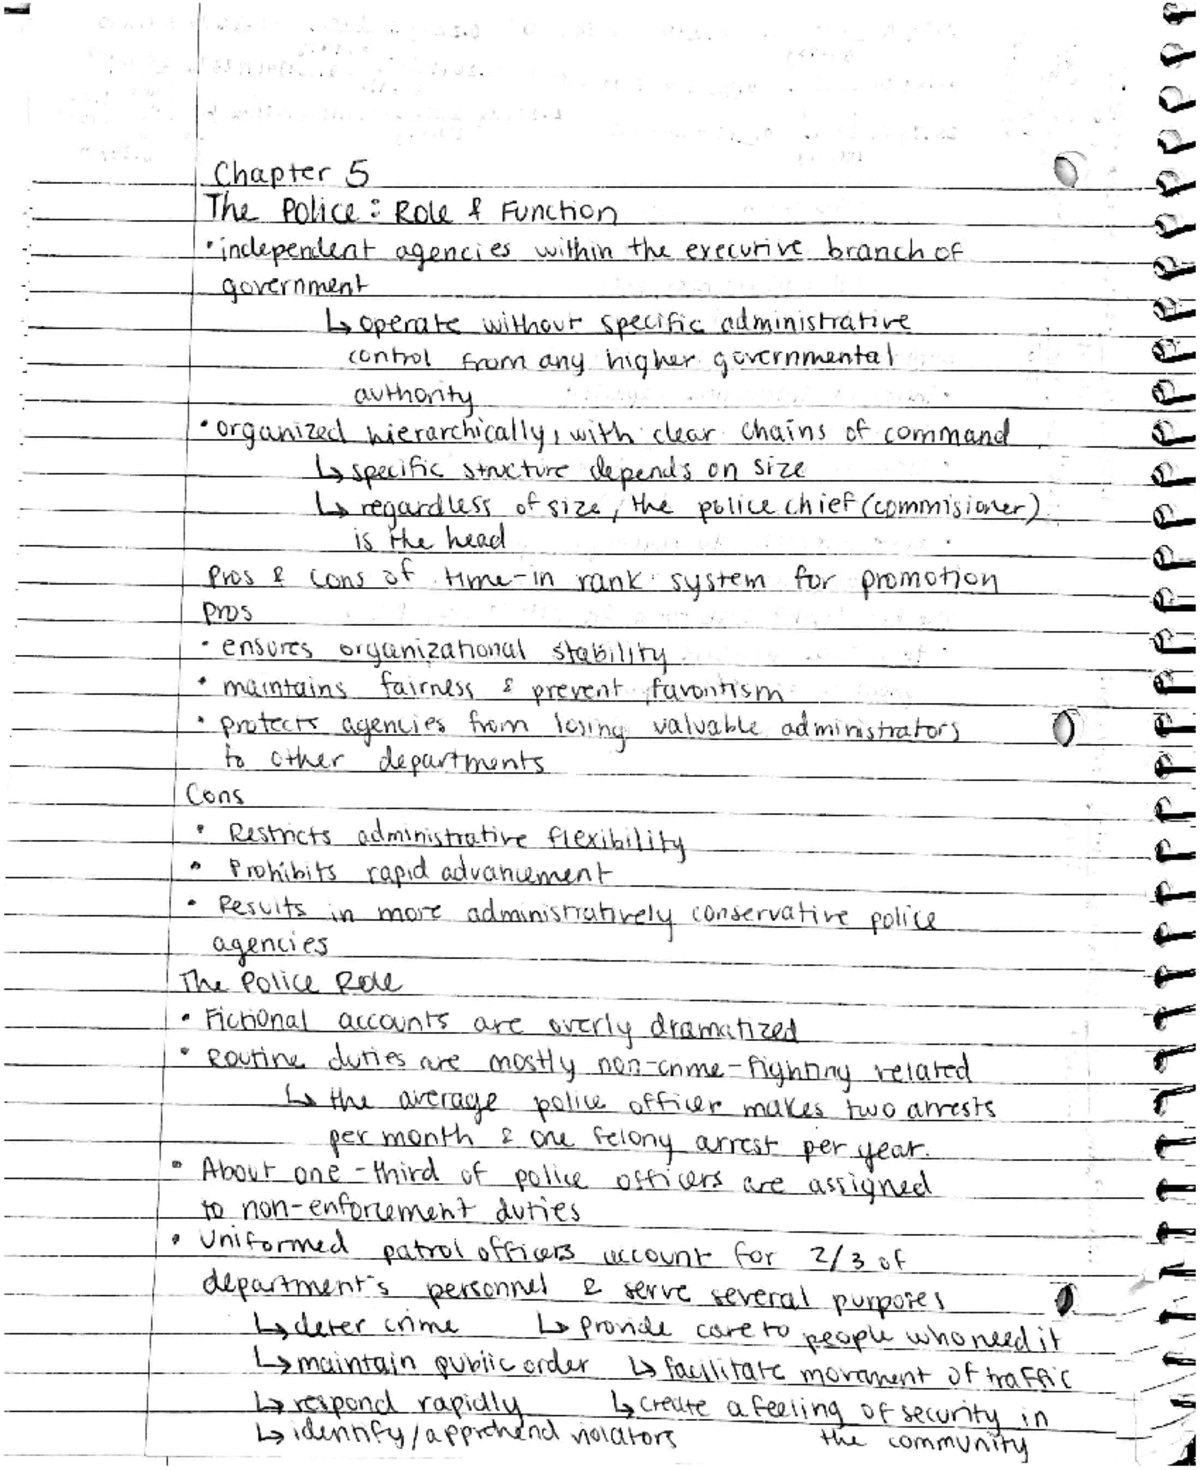 Chapter 5
The Police: Role & Function
• independent agencies within the executive branch of
government
↳ operate without specific administrative
control from any higher governmental
authority
• organized hierarchically, with clear chains of command
↳ specific structure depends on size
↳ regardless of size, the police chief (commisioner)
is the head
Pros & Cons of time-in rank system for promotion
Pros
• ensures organizational stability
• maintains fairness & prevent favoritism
• protects agencies from losing valuable administrators
to other departments
Cons
• Restricts administrative flexibility
• Prohibits rapid advancement
• Results in more administratively conservative police
agencies
The Police Role
• Fictional accounts are overly dramatized
• Routine duties are mostly non-crime-fighting related
↳ the average police officer makes two arrests
per month & one felony arrest per year.
• About one-third of police officers are assigned
to non-enforcement duties
• Uniformed patrol officers account for 2/3 of
department's personnel & serve several purposes
↳ deter crime ↳ provide care to people who need it
↳ maintain public order ↳ facilitate movement of traffic
↳ respond rapidly ↳ create a feeling of security in
↳ identify/apprehend violators the community